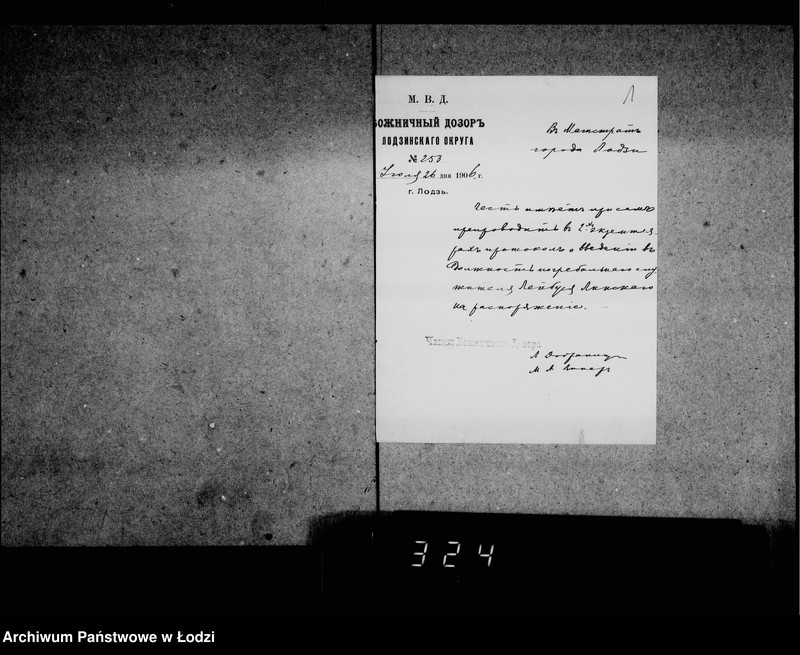 М. В. Д.
ОЖНИЧНЫЙ ДОЗОРЪ
ЛОДЗИНСКАГО ОКРУГА
№ 253
Іюля 26 дня 1906 г.
г. Лодзь.
Въ Магистратъ
города Лодзи
Честь имѣетъ при семъ
препроводить въ 2-хъ экземпля
рахъ протоколъ о введеніи въ
должность погребальнаго слу
жителя Лейбуся Липскаго
на распоряженіе.
Члены Божничнаго Дозора
324
Archiwum Państwowe w Łodzi